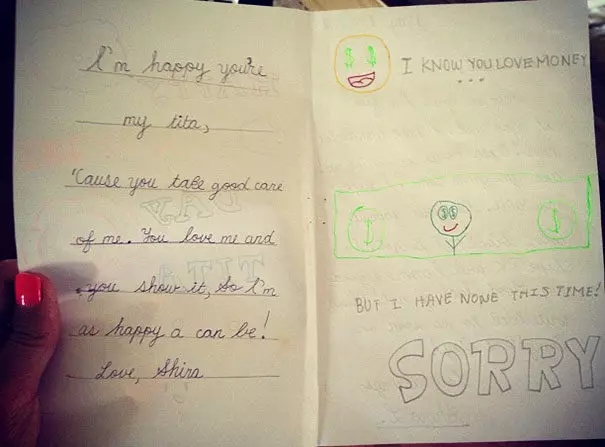 I'm happy you're
my tita,
'Cause you take good care
of me. You love me and
you show it, So I'm
as happy a can be!
Love, Shira
I KNOW YOU LOVE MONEY
...
BUT I HAVE NONE THIS TIME!
SORRY